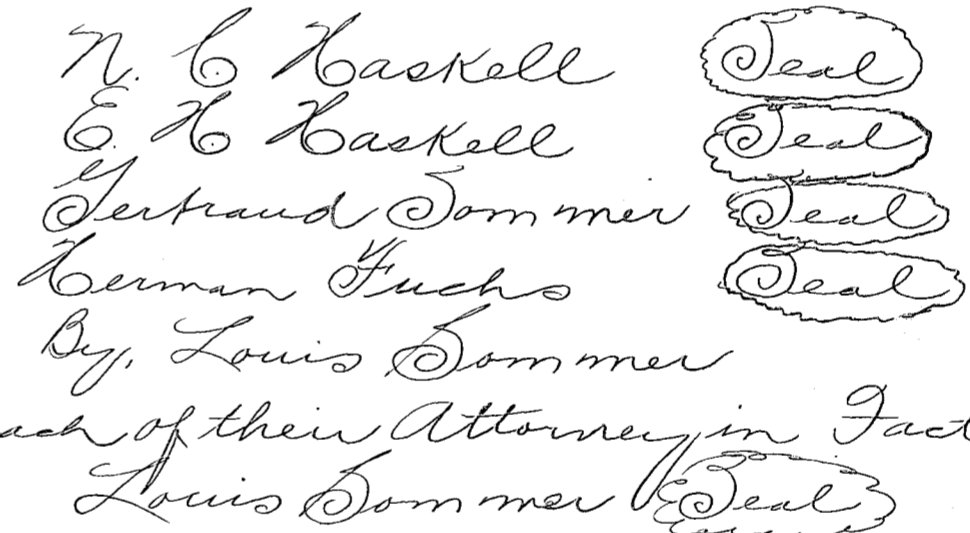 N. C Haskell Seal
E. H Haskell Seal
Gertraud Sommer Seal
Herman Fuchs Seal
By, Louis Sommer
ach of their Attorney in Fact
Louis Sommer Seal